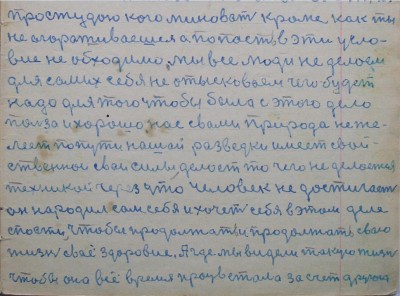 простудою кого миновать кроме, как ты
не огораживаешся а попасть в эти усло-
вие не обходимо, мы все люди не делаем
для самих себя не отысковаем чего будет
надо для того чтобы была с этого дело
польза и хорошо, нас с вами природа не же-
леет по пути нашей разведки имеет свой-
ственной сваи силы, делает то чего не делается
техникой через что человек не достигает
он народил сам себя и хочет себя в этом деле
спасти, чтобы продолжать и продолжать сваю
жизнь сваё здоровие. А где мы видели такую жизнь
чтобы она всё время процветала за счет другога